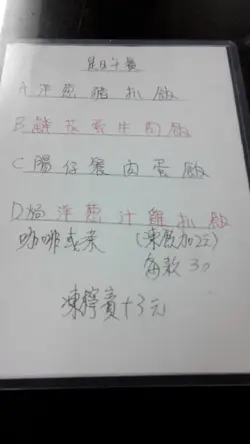 是日午餐
A 洋葱豬扒飯
B 鮮茄蛋牛肉飯
C 腸仔餐肉蛋飯
D 焗洋葱汁雞扒飯
咖啡或茶 (凍飲加2元)
每款 30
凍檸賓+3元